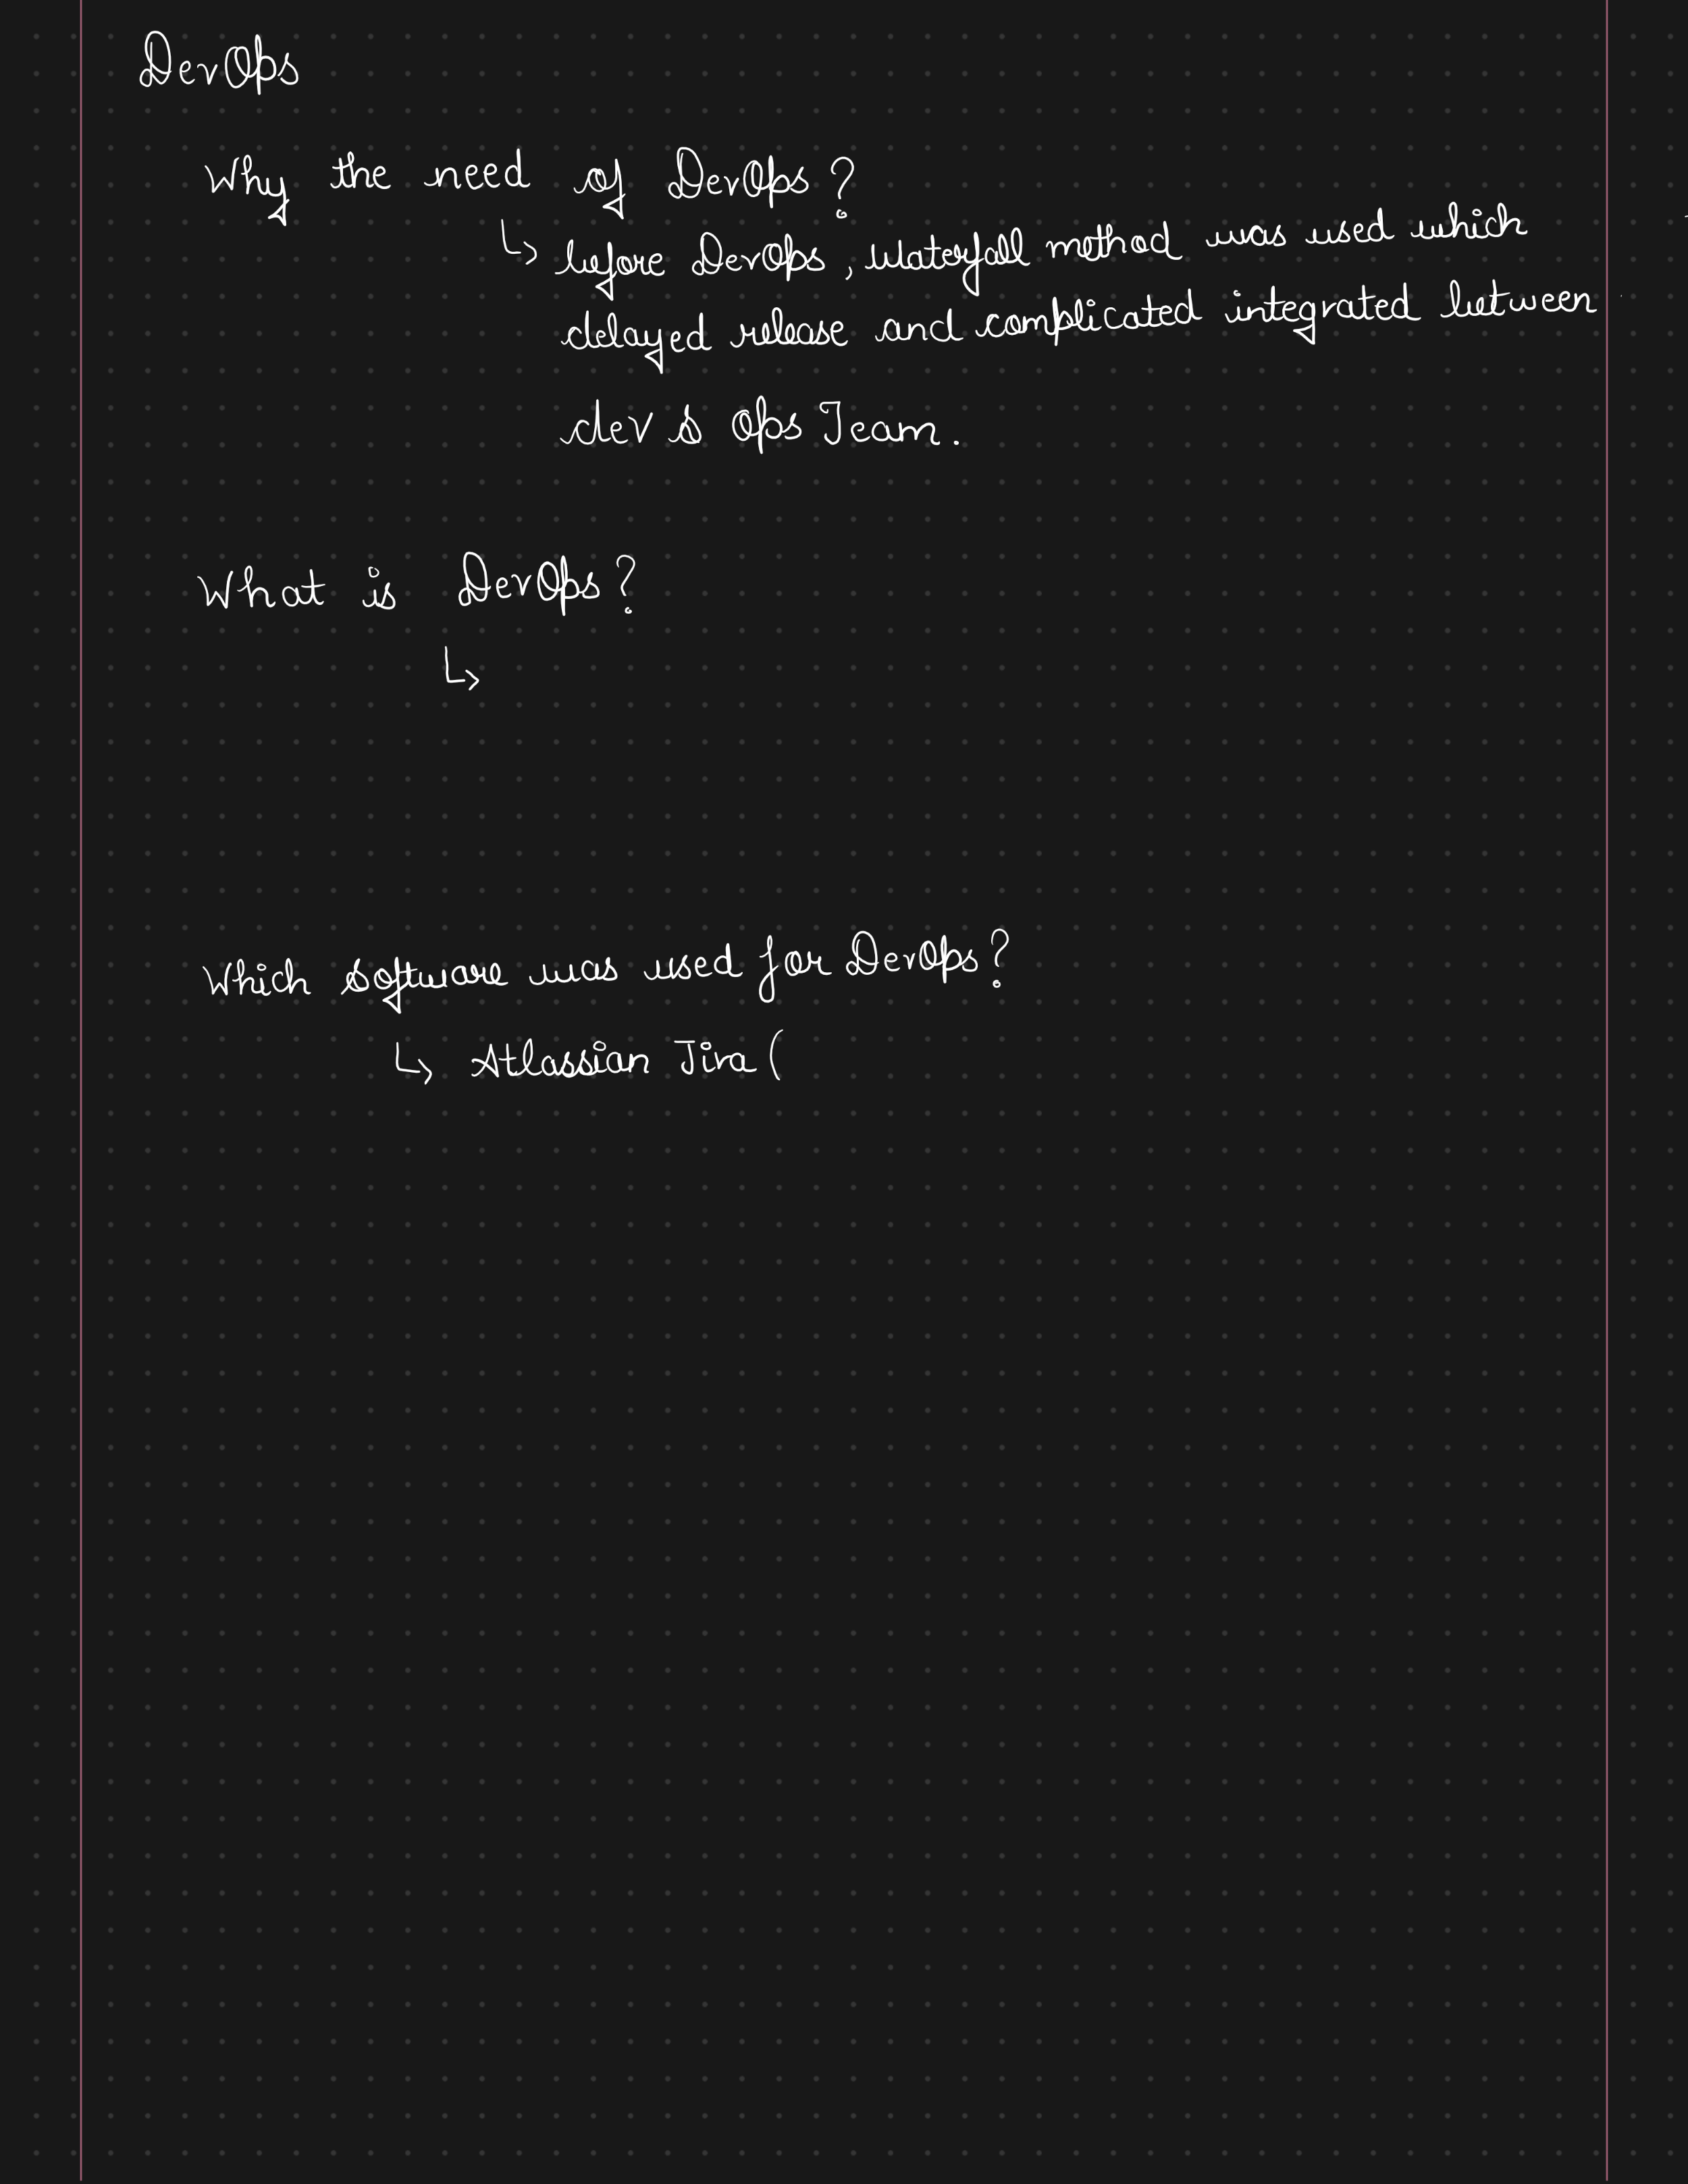 DevOps
Why the need of DevOps?
↳ before DevOps, Waterfall method was used which
delayed release and complicated integrated between
dev & Ops Team.
What is DevOps?
↳
Which software was used for DevOps?
↳ Atlassian Jira (